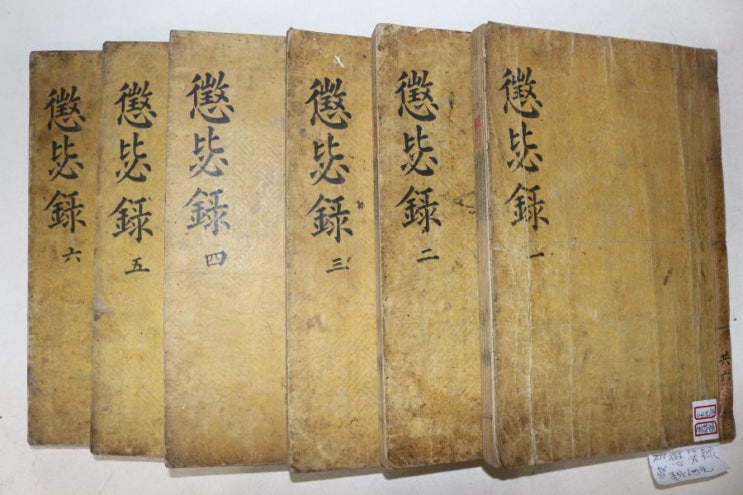 懲毖錄
一
共六
懲毖錄
二
懲毖錄
三
懲毖錄
四
懲毖錄
五
懲毖錄
六
懲毖錄